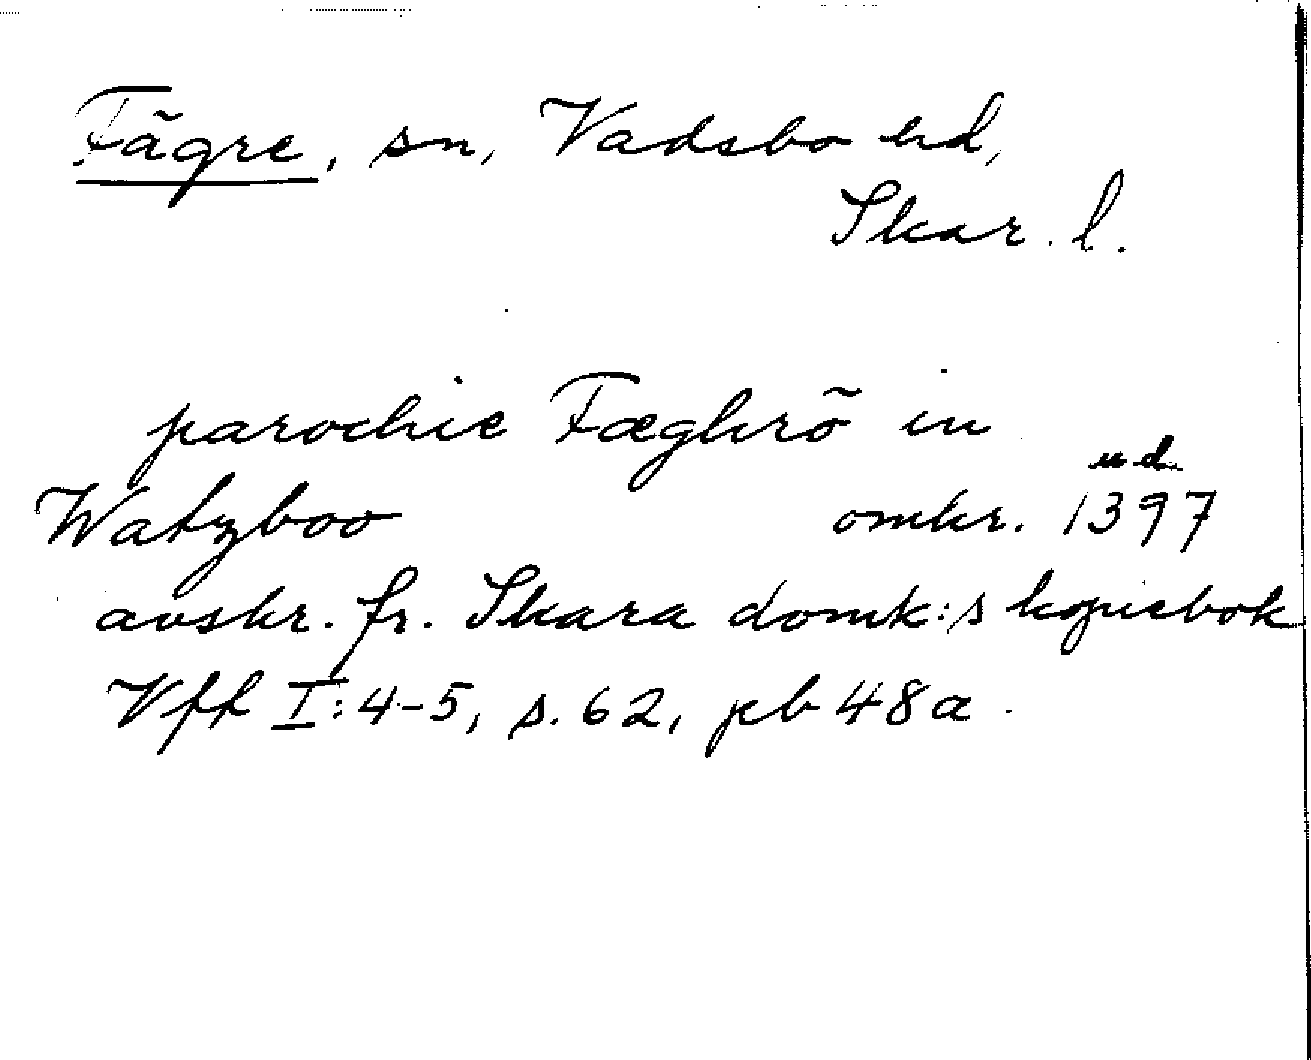 Fägre, sn, Vadsbo hd,
Skar. l.
parochie Fæghrö in
u.d.
Watzboo omkr. 1397
avskr. fr. Skara domk:s kopiebok
Vff I:4-5, s. 62, pb 48a.